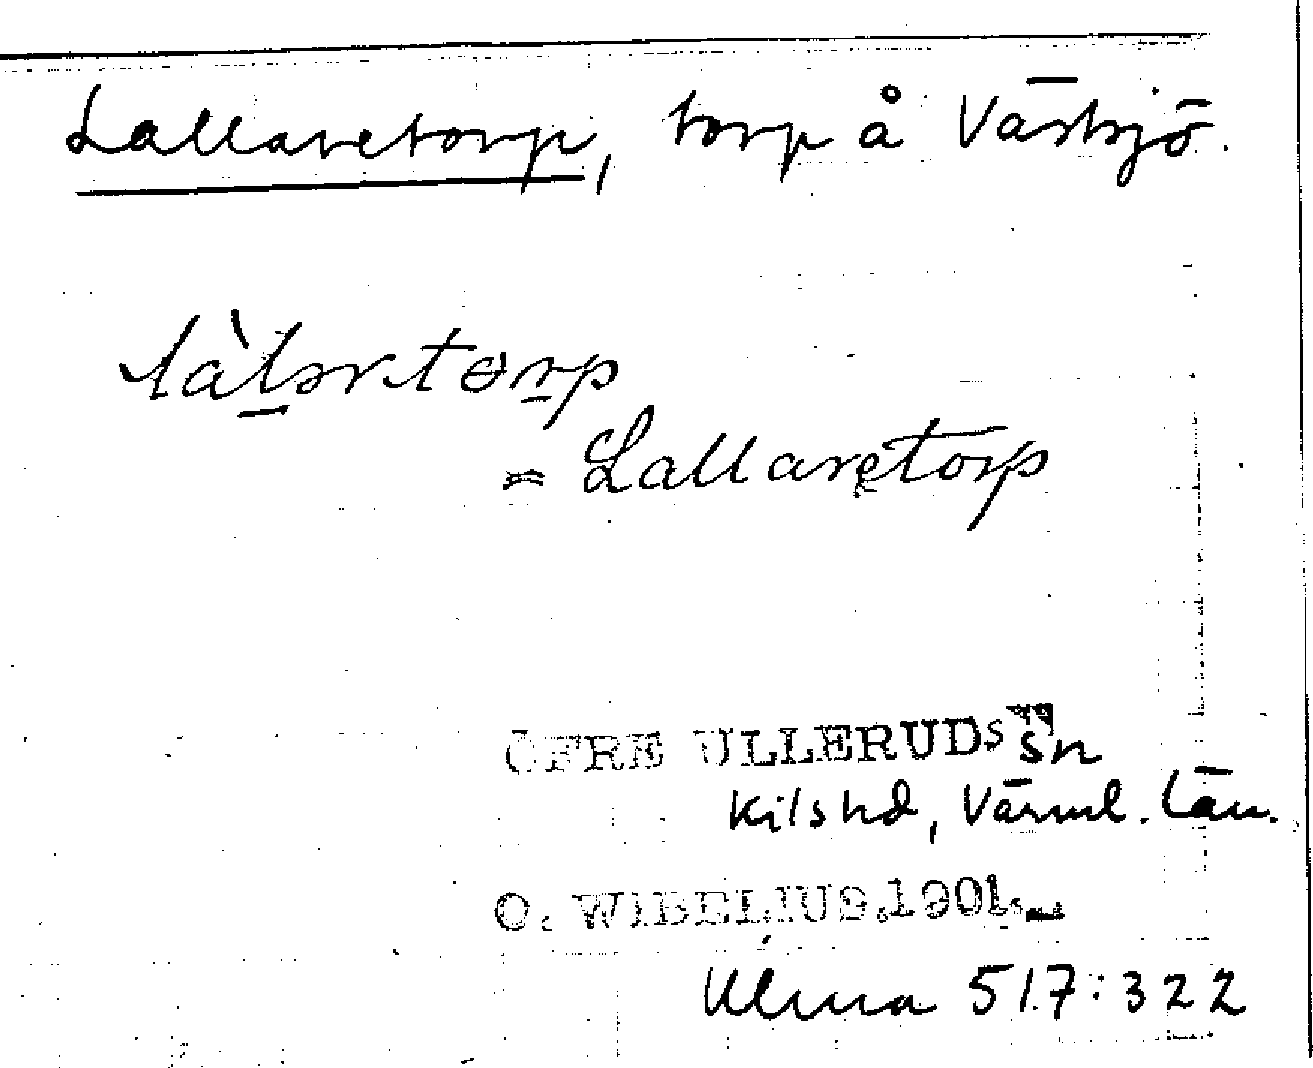 Lallaretorp, torp å Västsjö.
= Lallaretorp
ÖFRE ULLERUDs sn
Kils hd, Värml. län.
O. WIBELIUS.1901.
Ulma 517:322